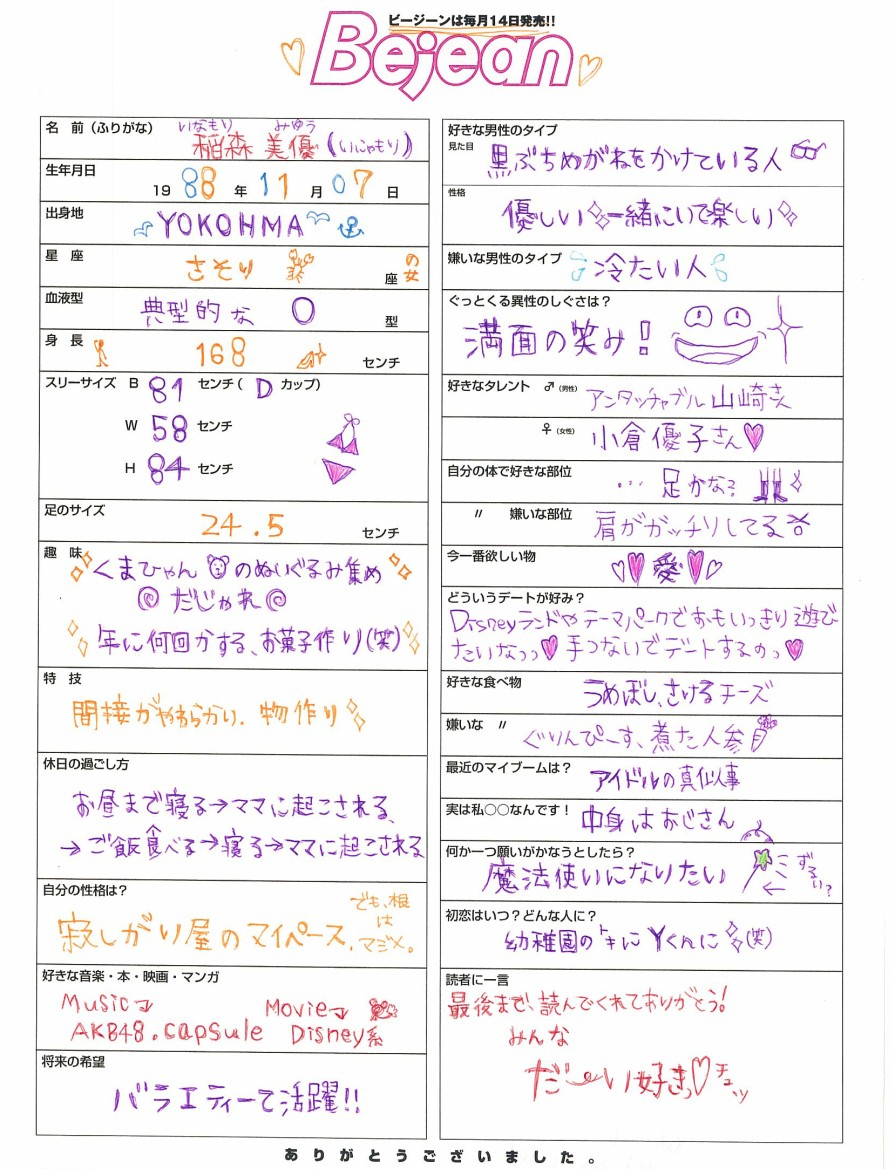 ビージーンは毎月14日発売!!
Bejean
名　前（ふりがな）
いなもり　みゆう
稲森　美優（いにゃもり）
生年月日
1988年11月07日
出身地
YOKOHMA
星　座
さそり座の女
血液型
典型的な　O型
身　長
168センチ
スリーサイズ　B　81センチ（　Dカップ）
W　58センチ
H　84センチ
足のサイズ
24.5センチ
趣　味
くまひゃんのぬいぐるみ集め
だじゃれ
年に何回かする、お菓子作り(笑)
特　技
間接がやわらかい.　物作り
休日の過ごし方
お昼まで寝る→ママに起こされる、
→ご飯食べる→寝る→ママに起こされる
自分の性格は?
寂しがり屋のマイペース.
でも、根
は
マジメ。
好きな音楽・本・映画・マンガ
Music　Movie
AKB48.capsule　Disney系
将来の希望
バラエティーで活躍!!
好きな男性のタイプ
見た目
黒ぶちめがねをかけている人
性格
優しい　一緒にいて楽しい
嫌いな男性のタイプ
冷たい人
ぐっとくる異性のしぐさは？
満面の笑み！
好きなタレント　♂（男性）
アンタッチャブル山崎さん
♀（女性）
小倉優子さん♥
自分の体で好きな部位
…足かな?
〃　嫌いな部位
肩がガッチリしてる
今一番欲しい物
♡♥愛♥♡
どういうデートが好み？
Disneyランドやテーマパークでおもいっきり遊び
たいなっっ♥手つないでデートするのっ♥
好きな食べ物
うめぼし、さけるチーズ
嫌いな　〃
ぐりんぴーす、煮た人参
最近のマイブームは？
アイドルの真似事
実は私○○なんです！
中身はおじさん
何か一つ願いがかなうとしたら？
魔法使いになりたい
ずるい?
初恋はいつ？どんな人に？
幼稚園のトキにYくんに(笑)
読者に一言
最後まで、読んでくれてありがとう!
みんな
だ～い好きっ♡チュッ
ありがとうございました。